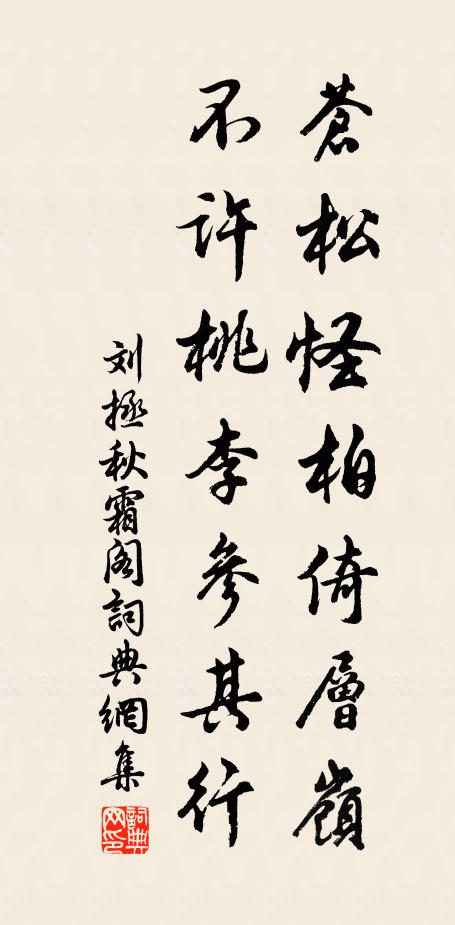 蒼松怪柏倚層嶺
不許桃李參其行
刘拯秋霜阁詞典網集
詞典网印